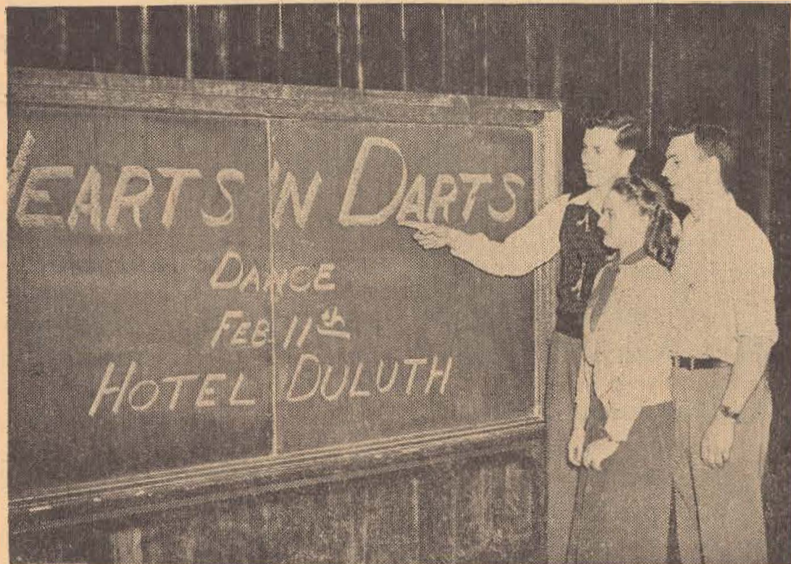 HEARTS 'N DARTS
DANCE
FEB 11th
HOTEL DULUTH